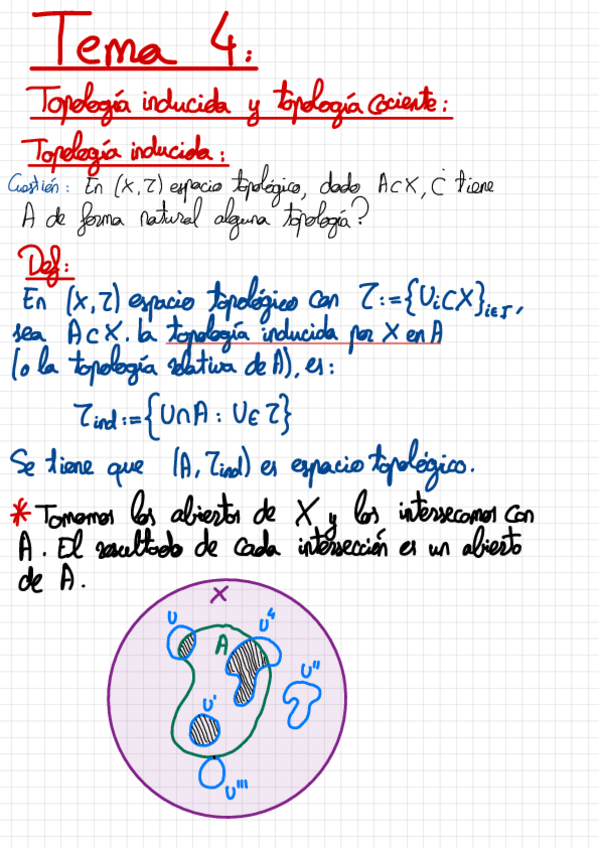 Tema 4:
Topología inducida y topología cociente:
Topología inducida:
Cuestión: En (X,τ) espacio topológico, dado A⊂X, ¿ tiene
A de forma natural alguna topología?
Def:
En (X,τ) espacio topológico con τ:={Uᵢ⊂X}ᵢ∈I,
sea A⊂X. La topología inducida por X en A
(o la topología relativa de A), es:
τind:={U∩A : U∈τ}
Se tiene que (A,τind) es espacio topológico.
* Tomamos los abiertos de X y los intersecamos con
A. El resultado de cada intersección es un abierto
de A.
X
U
U⁴
A
U''
U'
U'''